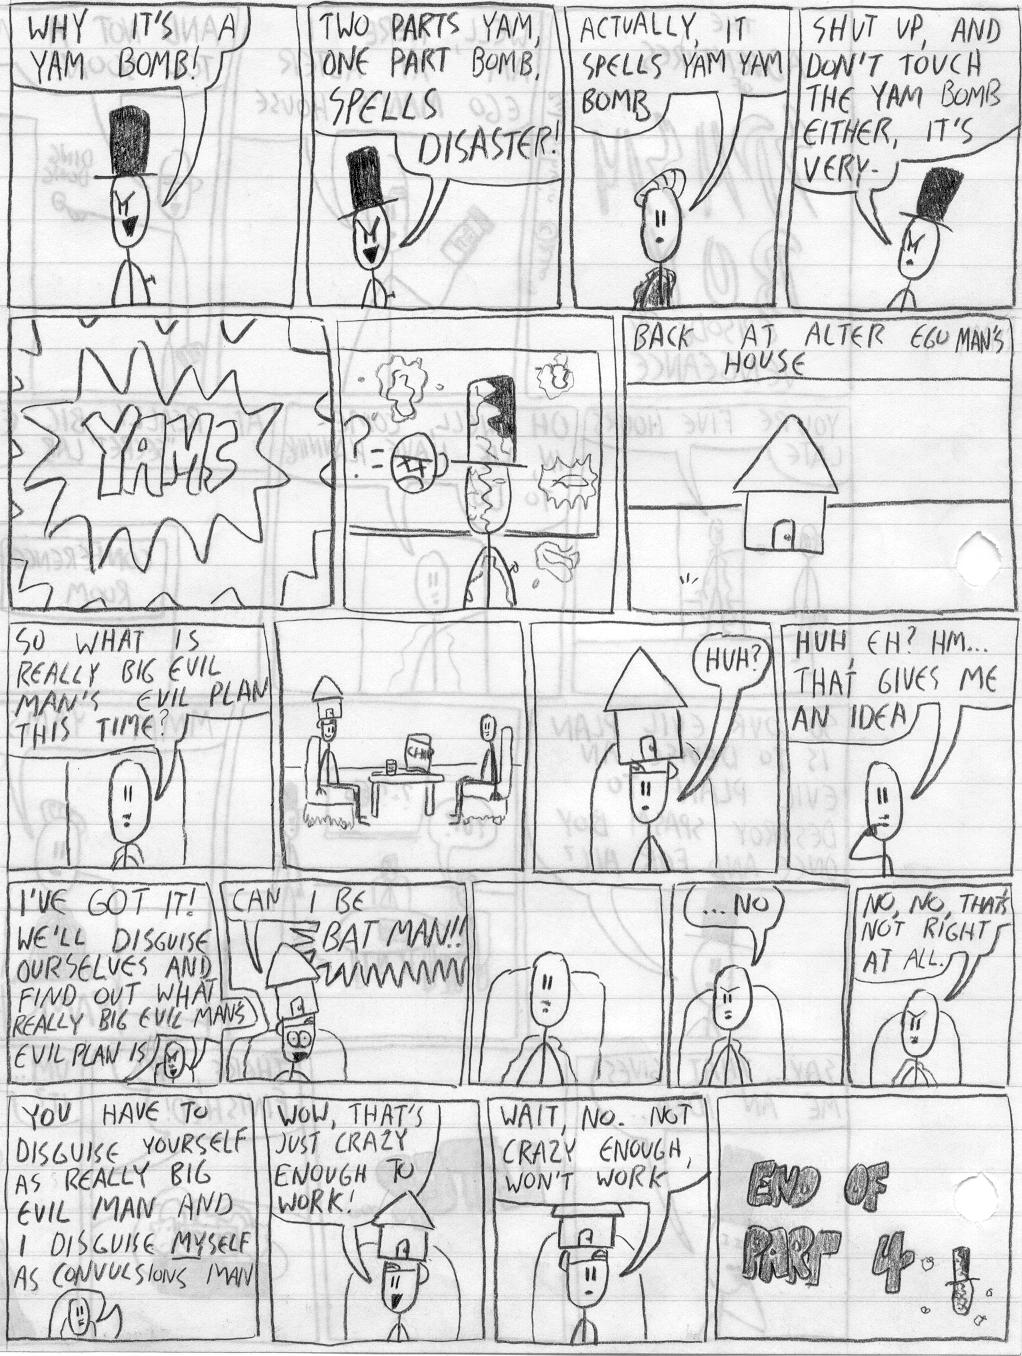 WHY IT'S A
YAM BOMB!
TWO PARTS YAM,
ONE PART BOMB,
SPELLS
DISASTER!
ACTUALLY, IT
SPELLS YAM YAM
BOMB
SHUT UP, AND
DON'T TOUCH
THE YAM BOMB
EITHER, IT'S
VERY-
YAMS
?
BACK AT ALTER EGO MAN'S
HOUSE
SO WHAT IS
REALLY BIG EVIL
MAN'S EVIL PLAN
THIS TIME?
HUH?
HUH, EH? HM...
THAT GIVES ME
AN IDEA
I'VE GOT IT!
WE'LL DISGUISE
OURSELVES AND
FIND OUT WHAT
REALLY BIG EVIL MAN'S
EVIL PLAN IS
CAN I BE
BAT MAN!!
...NO
NO, NO, THAT'S
NOT RIGHT
AT ALL.
YOU HAVE TO
DISGUISE YOURSELF
AS REALLY BIG
EVIL MAN AND
I DISGUISE MYSELF
AS CONVULSIONS MAN
WOW, THAT'S
JUST CRAZY
ENOUGH TO
WORK!
WAIT, NO... NOT
CRAZY ENOUGH,
WON'T WORK
END OF
PART 4